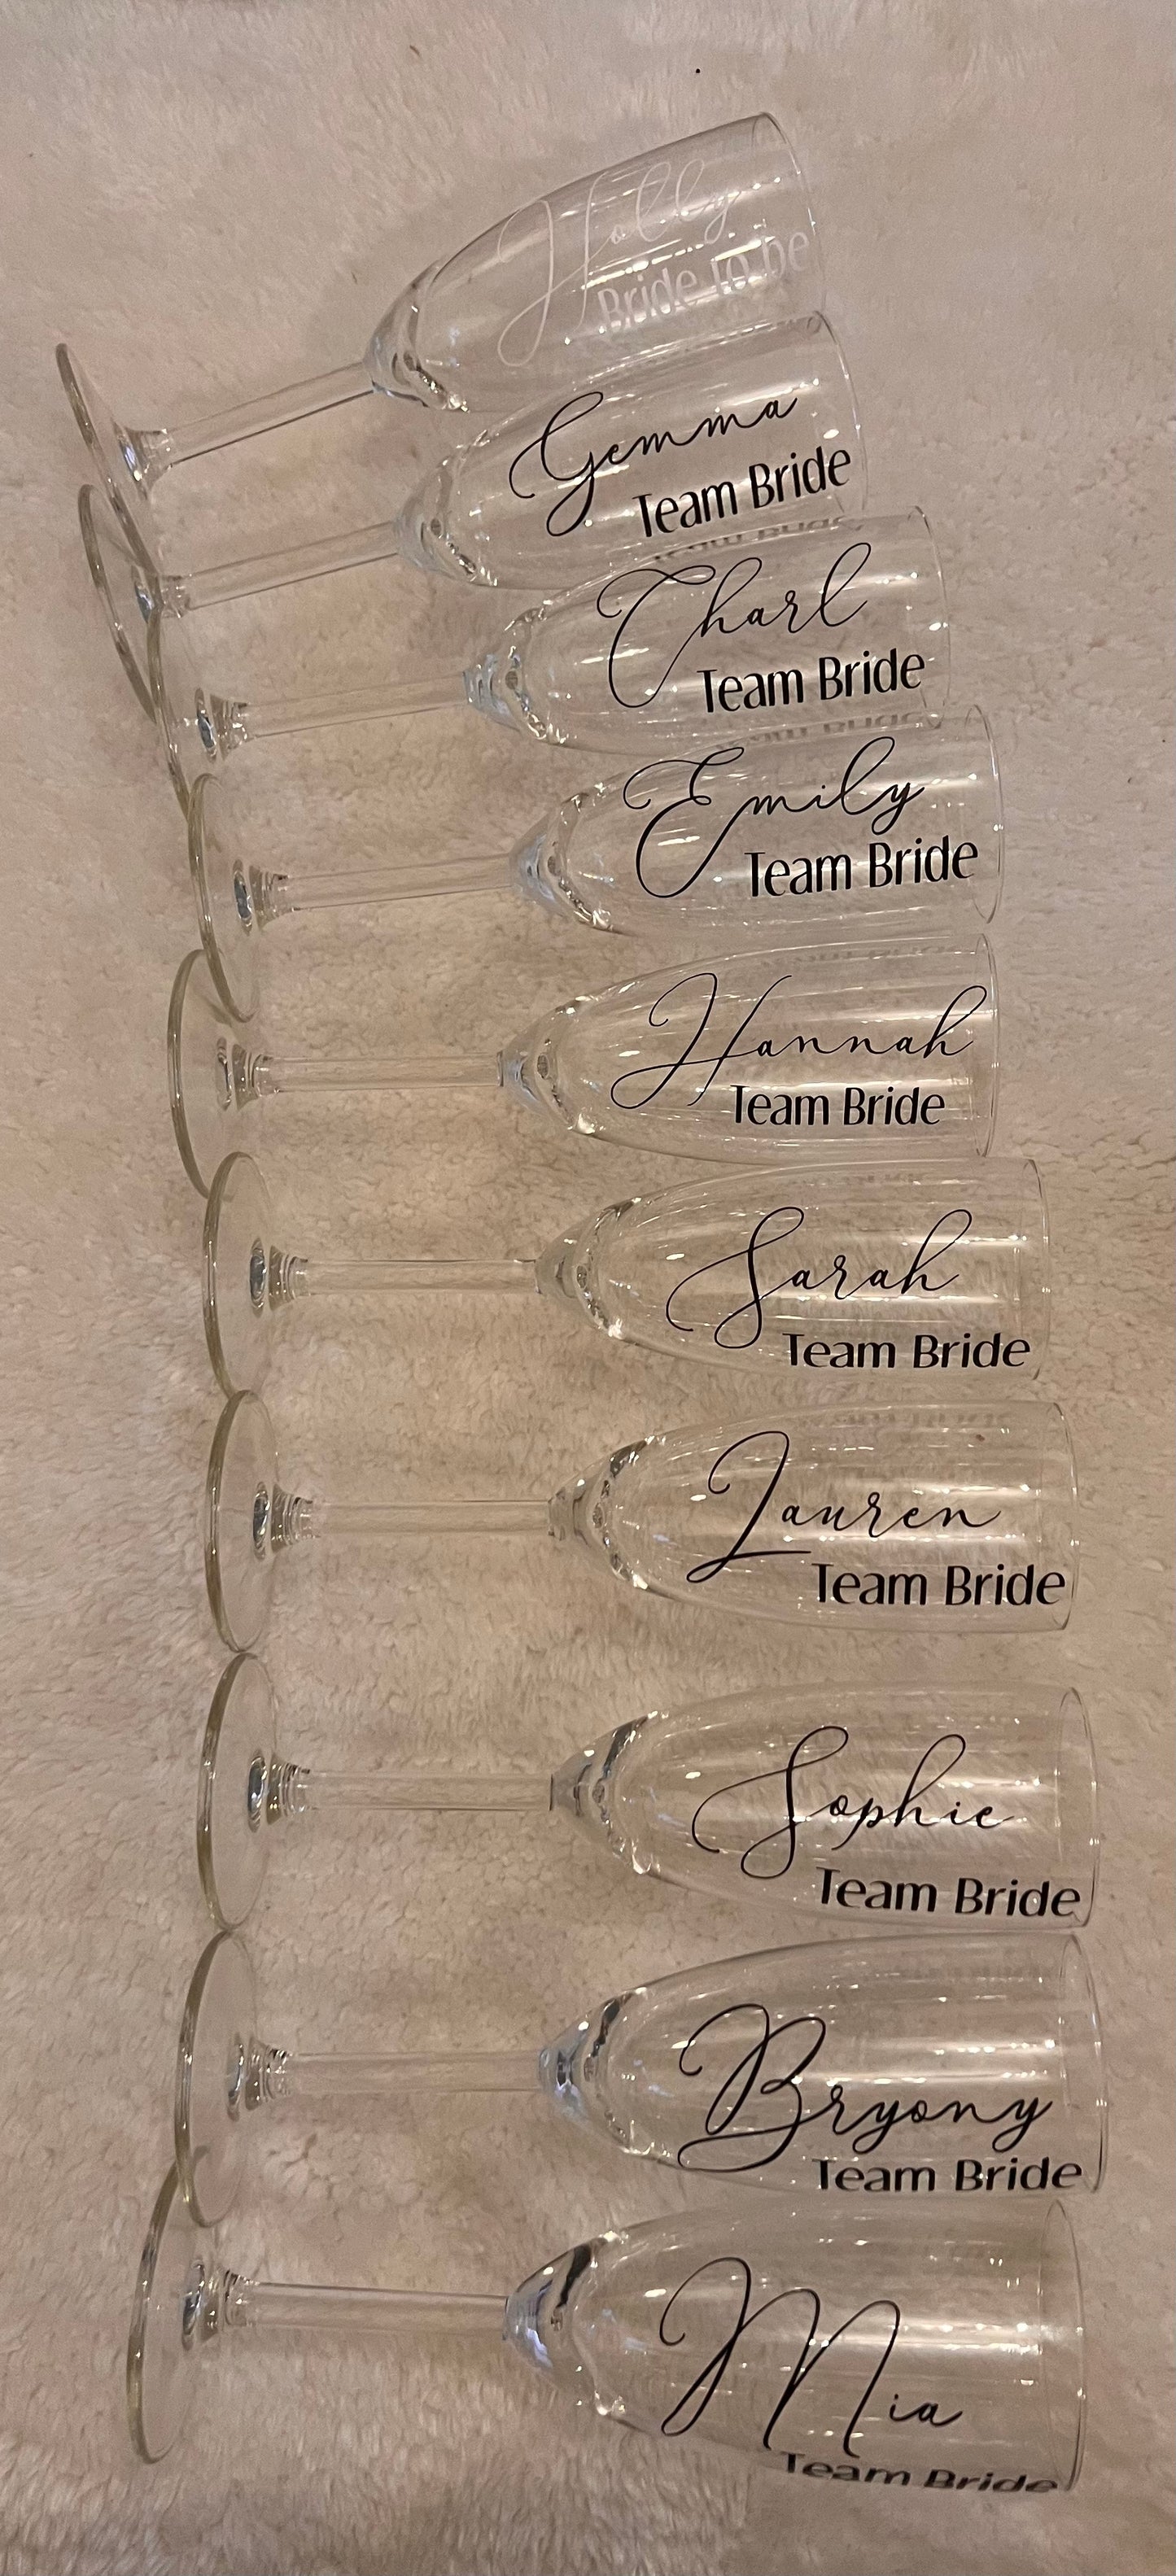 Holly
Bride to be
Gemma
Team Bride
Charl
Team Bride
Emily
Team Bride
Hannah
Team Bride
Sarah
Team Bride
Lauren
Team Bride
Sophie
Team Bride
Bryony
Team Bride
Mia
Team Bride